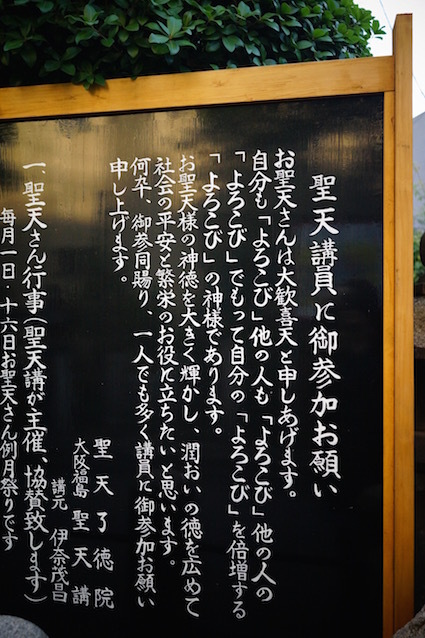 聖天講員に御参加お願い
お聖天さんは大歓喜天と申しあげます。
自分も「よろこび」他の人も「よろこび」他の人の
「よろこび」でもって自分の「よろこび」を倍増する
「よろこび」の神様であります。
お聖天様の神徳を大きく輝かし、潤おいの徳を広めて
社会の平安と繁栄のお役に立ちたいと思います。
何卒、御参同賜り、一人でも多く講員に御参加お願い
申し上げます。
聖天了徳院
大阪福島聖天講
講元 伊奈茂昌
一、聖天さん行事(聖天講が主催、協賛致します)
毎月一日・十六日お聖天さん例月祭りです